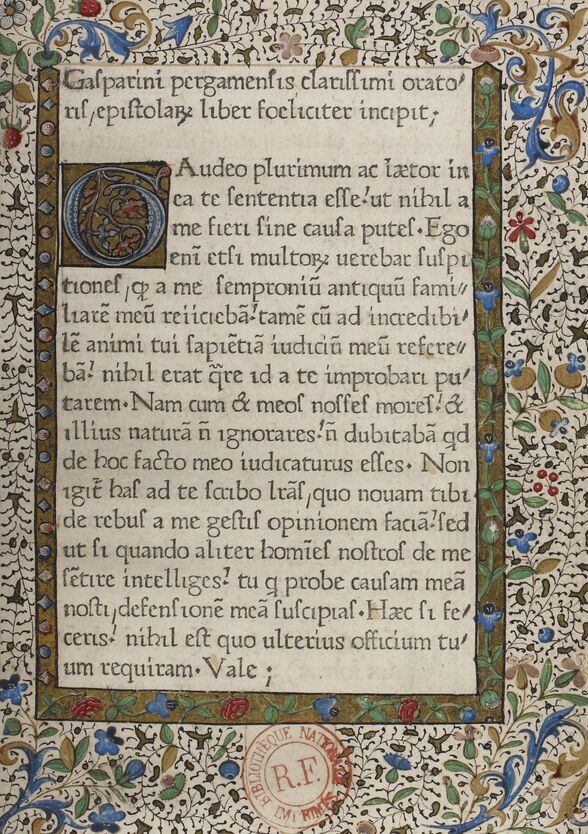 Gaſparini pergamenſis clariſſimi orato⸗
ris, epiſtolaꝝ liber foeliciter incipit;
GAudeo plurimum ac lætor in
ea te ſententia eſſe: ut nihil a
me fieri ſine cauſa putes. Ego
enī etſi multoꝝ uerebar ſuſpi
tiones, ꝙ a me ſemproniū antiquū fami⸗
liarē meū reiiciebā: tamē cū ad incredibi⸗
lē animi tui ſapiētiā iudiciū meū refere⸗
bā: nihil erat q̄re id a te improbari pu⸗
tarem. Nam cum & meos noſſes mores: &
illius naturā ñ ignorares: ñ dubitabā qd
de hoc facto meo iudicaturus eſſes. Non
igit̃ has ad te ſcribo lr̄as, quo nouam tibi
de rebus a me geſtis opinionem faciā: ſed
ut ſi quando aliter homīes noſtros de me
ſētire intelliges: tu q probe cauſam meā
noſti, defenſionē meā ſuſcipias. Hæc ſi fe⸗
ceris: nihil eſt quo ulterius officium tu⸗
um requiram. Vale;
BIBLIOTHÈQUE NATIONALE
R.F.
IMPRIMÉS